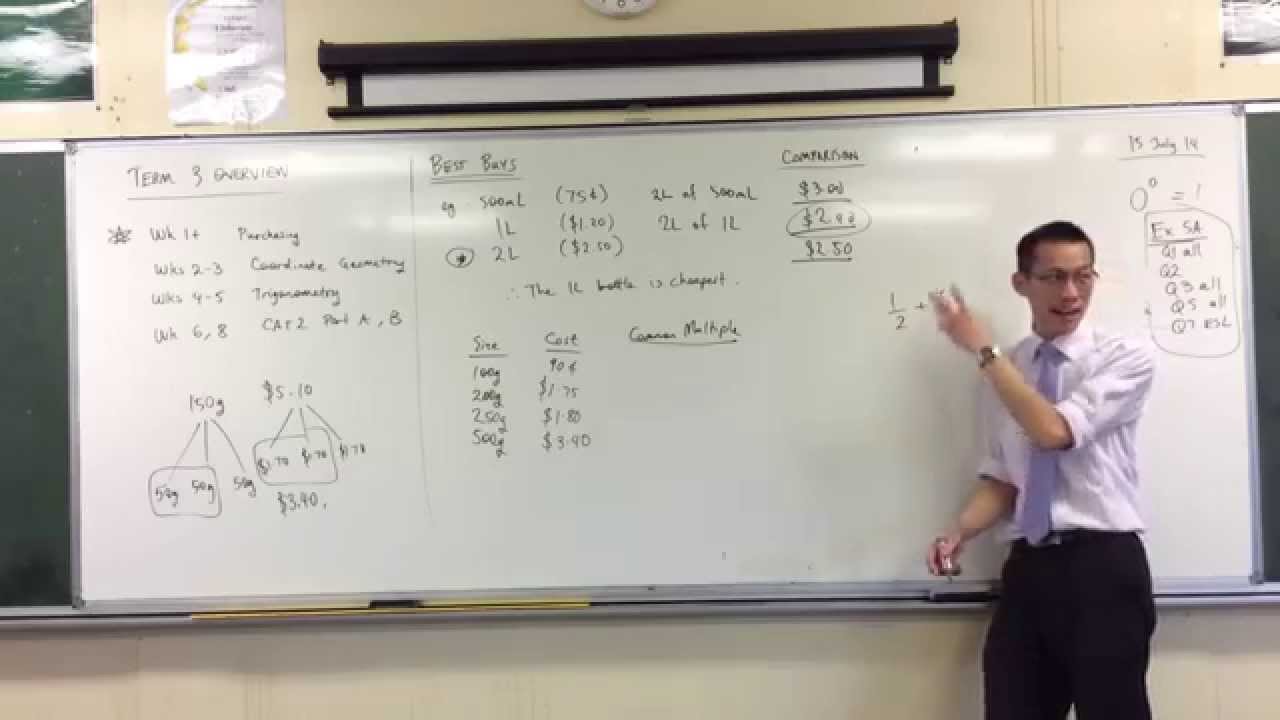 TERM 3 OVERVIEW
Wk 1+ Purchasing
Wks 2-3 Coordinate Geometry
Wks 4-5 Trigonometry
Wk 6, 8 CAT 2 Part A, B
150g $5.10
50g 50g 50g $1.70 $1.70 $1.70
$3.40.
BEST BUYS COMPARISON
eg. 500mL (75¢) 2L of 500mL $3.00
1L ($1.20) 2L of 1L
2L ($2.50) $2.50
∴ The 1L bottle is cheapest.
Size Cost Common Multiple
100g 90¢
200g $1.75
250g $1.80
500g $3.40
1/2 +
15 July 14
0⁰ = 1
Ex 5A
Q1 all
Q2
Q3 all
Q5 all
Q7